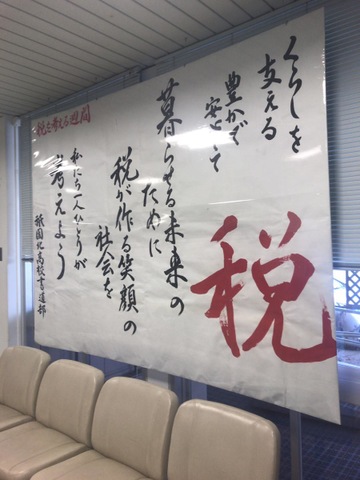 くらしを
支える
税
豊かで
安心して
暮らせる未来の
ために
税が作る笑顔の
社会を
私たち一人ひとりが
考えよう
祇園北高校書道部
税を考える週間